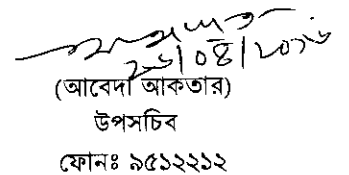 ২৬/০৪/২০১৬
(আবেদা আকতার)
উপসচিব
ফোনঃ ৯৫১২২১২